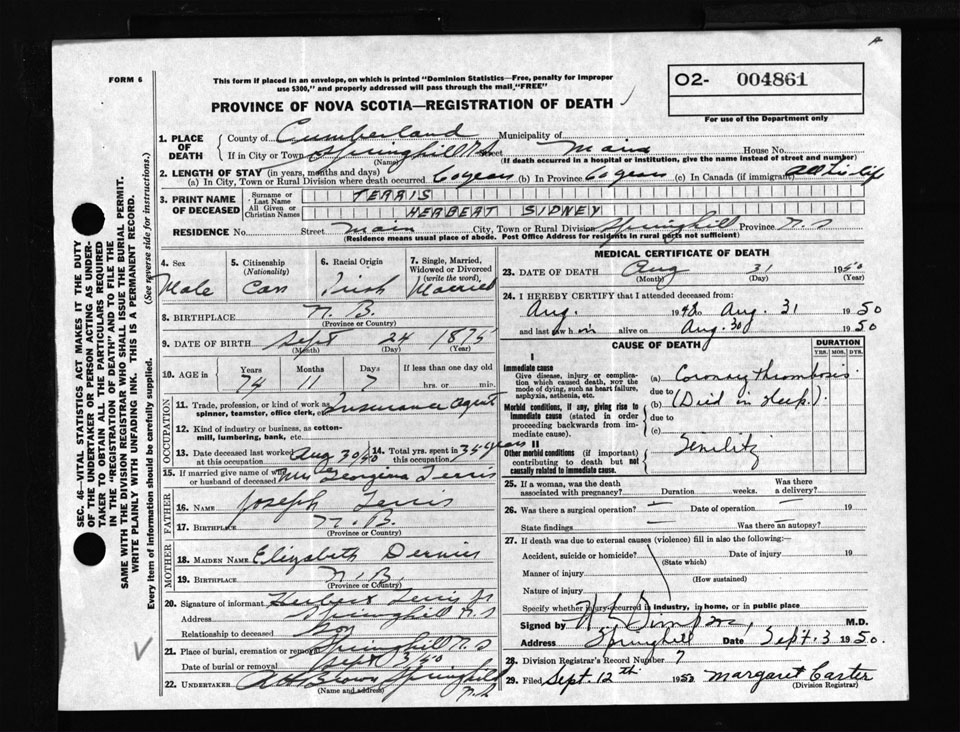 FORM 6
This form if placed in an envelope, on which is printed "Dominion Statistics—Free, penalty for improper
use $300," and properly addressed will pass through the mail, "FREE"
O2- 004861
For use of the Department only
PROVINCE OF NOVA SCOTIA—REGISTRATION OF DEATH
1. PLACE OF DEATH
County of Cumberland Municipality of
If in City or Town Springhill N.S Street Main House No.
(Name) (If death occurred in a hospital or institution, give the name instead of street and number)
2. LENGTH OF STAY (in years, months and days)
(a) In City, Town or Rural Division where death occurred 60 years (b) In Province 60 years (c) In Canada (if immigrant)
3. PRINT NAME OF DECEASED
Surname or Last Name TERRIS
All Given or Christian Names HERBERT SIDNEY
RESIDENCE No. Street Main City, Town or Rural Division Springhill Province N.S
(Residence means usual place of abode. Post Office Address for residents in rural parts not sufficient)
4. Sex
Male
5. Citizenship
(Nationality)
Can
6. Racial Origin
Irish
7. Single, Married, Widowed or Divorced
(write the word)
Married
8. BIRTHPLACE N.B.
(Province or Country)
9. DATE OF BIRTH Sept 24 1875
(Month) (Day) (Year)
10. AGE in Years Months Days If less than one day old
74 11 7 hrs. or min.
OCCUPATION
11. Trade, profession, or kind of work as spinner, teamster, office clerk, etc. Insurance agent
12. Kind of industry or business, as cotton-mill, lumbering, bank, etc.
13. Date deceased last worked at this occupation Aug 30/50
14. Total yrs. spent in this occupation 35 years
15. If married give name of wife or husband of deceased Mrs Georgina Terris
FATHER
16. Name Joseph Terris
17. Birthplace N.B.
(Province or Country)
MOTHER
18. MAIDEN NAME Elizabeth
19. BIRTHPLACE N.B.
(Province or Country)
20. Signature of informant Herbert Terris Jr
Address Springhill N.S
Relationship to deceased Son
21. Place of burial, cremation or removal Springhill N.S
Date of burial or removal Sept 3/50
22. UNDERTAKER Brown Springhill
(Name and address) N.S
MEDICAL CERTIFICATE OF DEATH
23. DATE OF DEATH Aug 31 1950
(Month) (Day) (Year)
24. I HEREBY CERTIFY that I attended deceased from:
Aug. 19 to Aug. 31 1950
and last saw h im alive on Aug. 30 1950
CAUSE OF DEATH
DURATION
YRS. MOS. DYS.
I
Immediate cause
Give disease, injury or complication which caused death, NOT the mode of dying, such as heart failure, asphyxia, asthenia, etc.
(a) Coronary thrombosis
due to
Morbid conditions, if any, giving rise to immediate cause (stated in order proceeding backwards from immediate cause).
(b) (Died in sleep.)
due to
(c)
II
Other morbid conditions (if important) contributing to death but not causally related to immediate cause.
Senility
25. If a woman, was the death associated with pregnancy? Duration weeks. Was there a delivery?
26. Was there a surgical operation? — Date of operation — 19
State findings — Was there an autopsy? —
27. If death was due to external causes (violence) fill in also the following:—
Accident, suicide or homicide? Date of injury 19
(State which)
Manner of injury
(How sustained)
Nature of injury
Specify whether injury occurred in industry, in home, or in public place
Signed by M.D.
Address Springhill Date Sept. 3 1950.
28. Division Registrar's Record Number 7
29. Filed Sept. 12th 1950 Margaret Carter
(Division Registrar)
SEC. 46—VITAL STATISTICS ACT MAKES IT THE DUTY
OF THE UNDERTAKER OR PERSON ACTING AS UNDER-
TAKER TO OBTAIN ALL THE PARTICULARS REQUIRED
IN THE "REGISTRATION OF DEATH" AND TO FILE THE
SAME WITH THE DIVISION REGISTRAR WHO SHALL ISSUE THE BURIAL PERMIT.
WRITE PLAINLY WITH UNFADING INK. THIS IS A PERMANENT RECORD.
Every item of information should be carefully supplied. (See reverse side for instructions.)